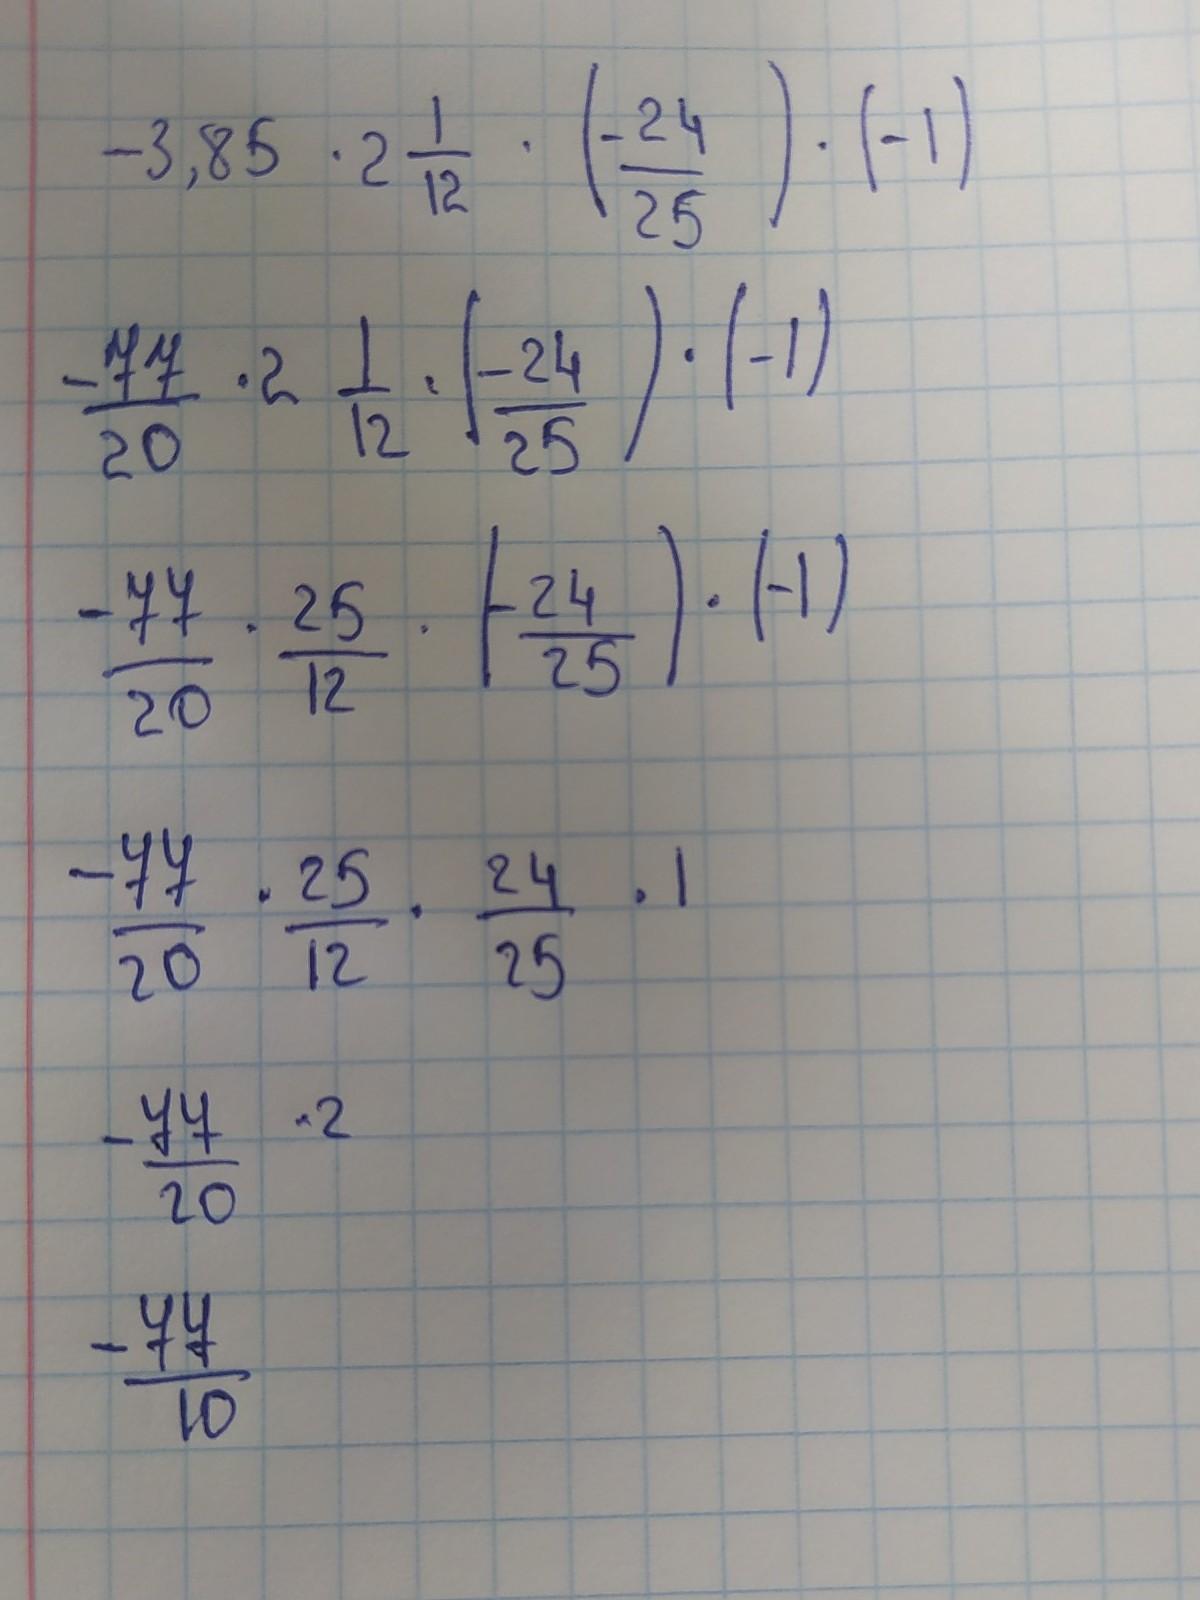 -3,85 · 2 1/12 · (-24/25) · (-1)
-77/20 · 2 1/12 · (-24/25) · (-1)
-77/20 · 25/12 · (-24/25) · (-1)
-77/20 · 25/12 · 24/25 · 1
-77/20 · 2
-77/10